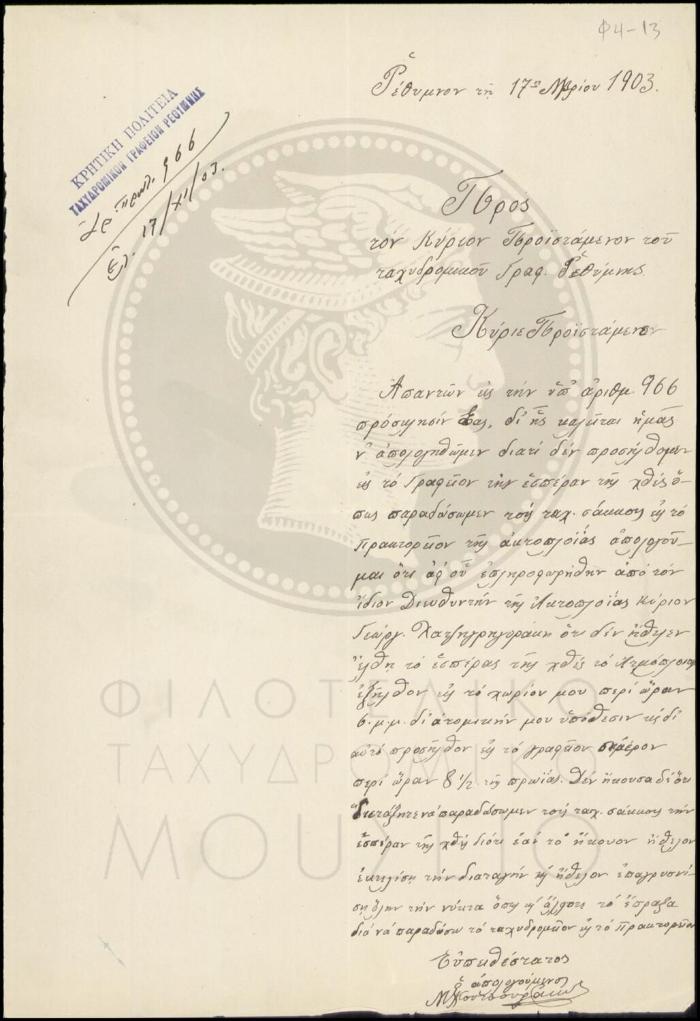 Φ4-13
Ῥέθυμνον τῇ 17ῃ Νβρίου 1903.
ΚΡΗΤΙΚΗ ΠΟΛΙΤΕΙΑ
ΤΑΧΥΔΡΟΜΙΚΟΝ ΓΡΑΦΕΙΟΝ ΡΕΘΥΜΝΗΣ
ἀρ. πρωτ. 966
17/XI/03.
Πρός
τόν Κύριον Προϊστάμενον τοῦ
ταχυδρομικοῦ Γραφ. Ρεθύμνης
Κύριε Προϊστάμενε
Ἀπαντῶν εἰς τήν ὑπ' ἀριθμ. 966
πρόσκλησίν Σας, δι' ἧς καλεῖται ἡμᾶς
ν' ἀπολογηθῶμεν διατί δέν προσήλθομεν
εἰς τό Γραφεῖον τήν ἑσπέραν τῆς χθές ὅ-
πως παραδώσωμεν τούς ταχ. σάκκους εἰς τό
Πρακτορεῖον τῆς ἀκτοπλοΐας ἀπολογοῦ-
μαι ὅτι ἀφ' οὗ ἐπληροφορήθην ἀπό τόν
ἴδιον Διευθυντήν τῆς Ἀκτοπλοΐας Κύριον
Γεώργ. Χατζηγρηγοράκη ὅτι δέν ἤθελεν
ἔλθῃ τό ἑσπέρας τῆς χθές τό Ἀτμόπλοιον
ἐξῆλθον εἰς τό χωρίον μου περί ὥραν
6 μ.μ. δι' ἀτομικήν μου ὑπόθεσιν κ δι
αὐτό προσῆλθον εἰς τό γραφεῖον σήμερον
περί ὥραν 8 1/2 τῆς πρωΐας. Δέν ἤκουσα δέ ὅτι
διετάξητε νά παραδώσωμεν τούς ταχ. σάκκους τήν
ἑσπέραν τῆς χθές διότι ἐάν τό ἤκουον ἤθελον
ἐκτελέσῃ τήν διαταγήν κ ἤθελον ἐπαγρυπνή-
σῃ ὅλην τήν νύκτα ὅπως κ ἄλλοτε τό ἔπραξα
διά νά παραδώσω τό ταχυδρομεῖον εἰς τό Πρακτορεῖον
Εὐπειθέστατος
ὁ ἀπολογούμενος
ΦΙΛΟΤΕΛΙΚΟ
ΤΑΧΥΔΡΟΜΙΚΟ
ΜΟΥΣΕΙΟ